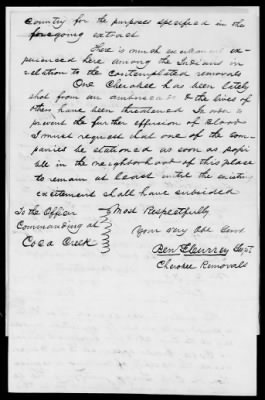 Country for the purposes specified in the
foregoing extract
Here is much excitement ex-
perienced here among the Indians in
relation to the contemplated removals
One Cherokee has been lately
shot from an ambuscade & the lives of
others have been threatened In order to
prevent the further effusion of blood
I must request that one of the com-
panies be stationed as soon as possi
ble in the neighborhood of this place
to remain at least until the existing
excitement shall have subsided
To the Officer
Commanding at
Coca Creek
Most Respectfully
Your Very Obt Servt
Ben F Currey Supt
Cherokee Removals